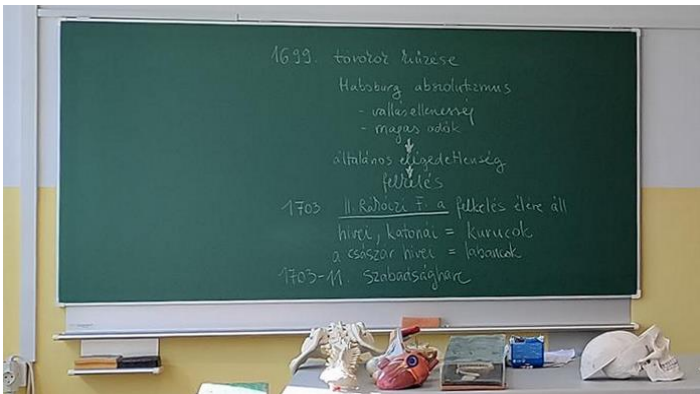 1699. törökök kiűzése
Habsburg abszolutizmus
- vallásellenesség
- magas adók
általános elégedetlenség
felkelés
1703 II. Rákóczi F. a felkelés élére áll
hívei, katonái = kurucok
a császár hívei = labancok
1703-11. Szabadságharc